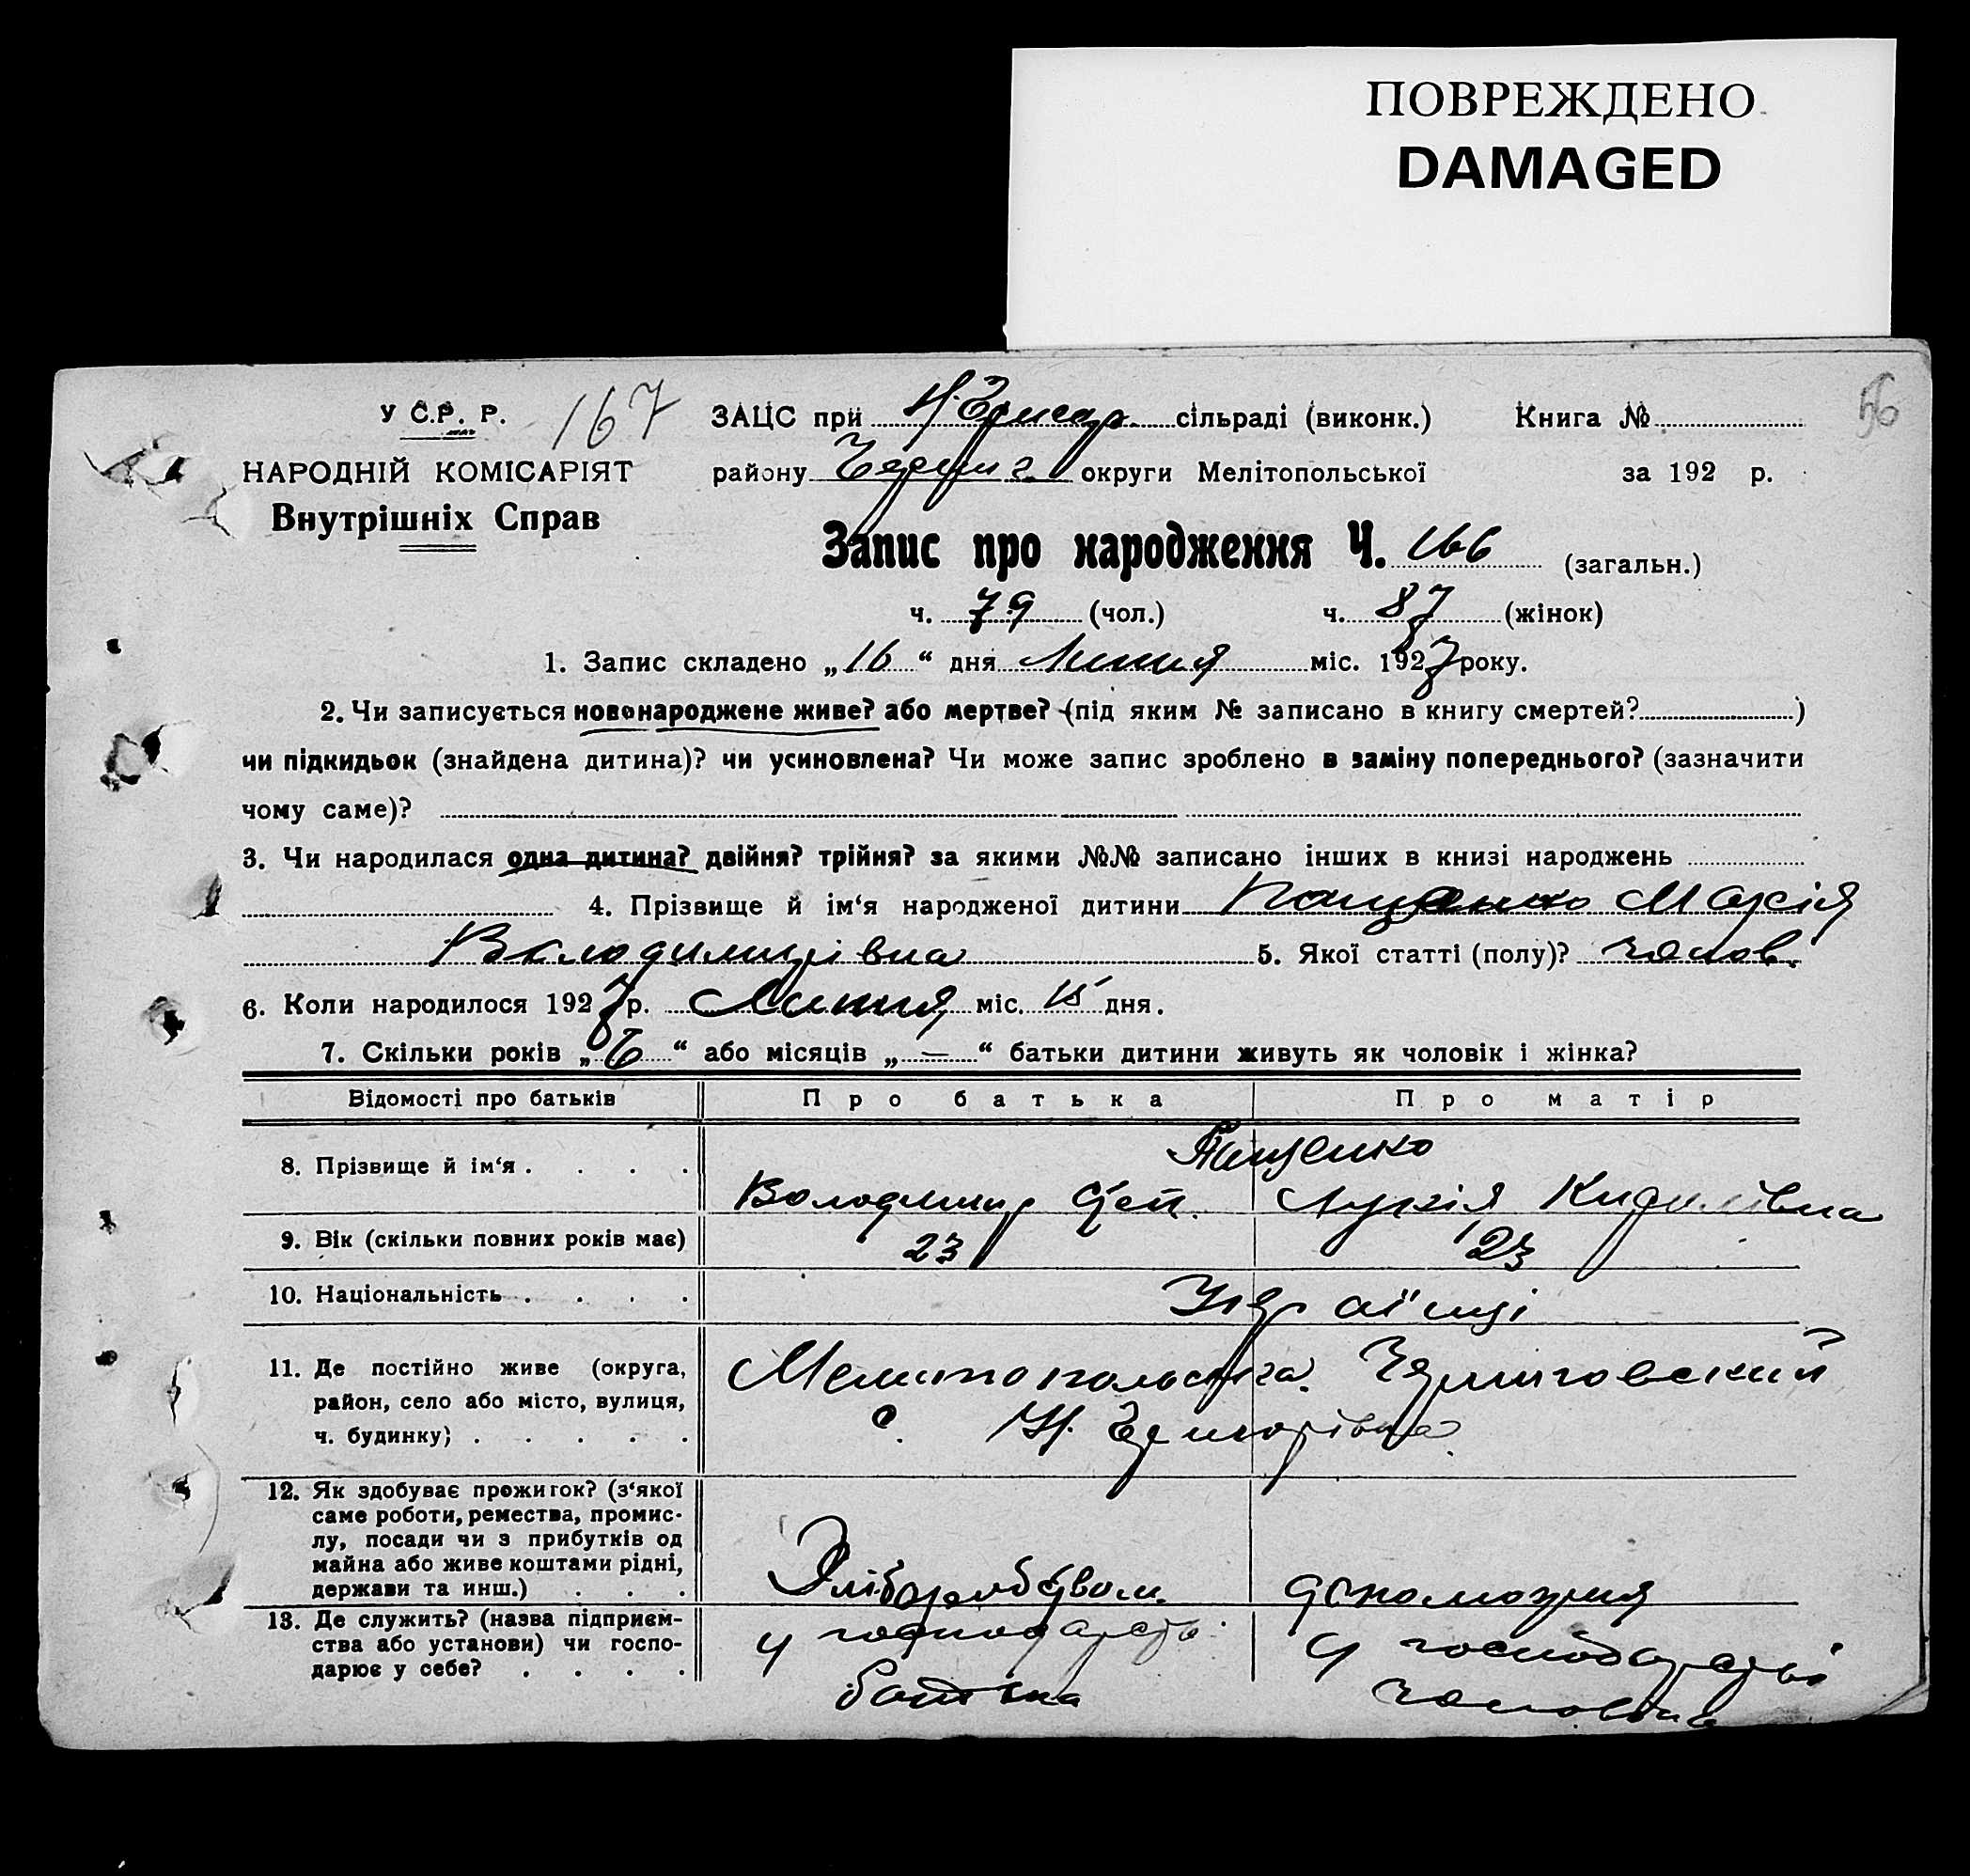 ПОВРЕЖДЕНО
DAMAGED
56
У С.Р. Р. 167 ЗАЦС при сільраді (виконк.) Книга №
НАРОДНІЙ КОМІСАРІЯТ району Черниг. округи Мелітопольської за 192 р.
Внутрішніх Справ
Запис про народження Ч. 166 (загальн.)
ч. 79 (чол.) ч. 87 (жінок)
1. Запис складено „16“ дня Липня міс. 1927 року.
2. Чи записується новонароджене живе? або мертве? (під яким № записано в книгу смертей? )
чи підкидьок (знайдена дитина)? чи усиновлена? Чи може запис зроблено в заміну попереднього? (зазначити
чому саме)?
3. Чи народилася одна дитина? двійня? трійня? за якими №№ записано інших в книзі народжень
4. Прізвище й ім‘я народженої дитини Пащенко Марія
Володимирівна 5. Якої статті (полу)?
6. Коли народилося 1927 р. Липня міс. 15 дня.
7. Скільки років „6“ або місяців „—“ батьки дитини живуть як чоловік і жінка?
Відомості про батьків Про батька Про матір
Пащенко
8. Прізвище й ім‘я . . . . Володимир Кирилівна
9. Вік (скільки повних років має) 23 23
10. Національність . . . . Українці
11. Де постійно живе (округа, Мелитопольська Черниговский
район, село або місто, вулиця, с.
ч. будинку) . . . . .
12. Як здобуває прожиток? (з‘якої
саме роботи, ремества, промис-
лу, посади чи з прибутків од
майна або живе коштами рідні,
держави та инш.) . . . Хліборобством
13. Де служить? (назва підприєм- у господарстві у господарстві
ства або установи) чи госпо-
дарює у себе? . . . . батька чоловіка